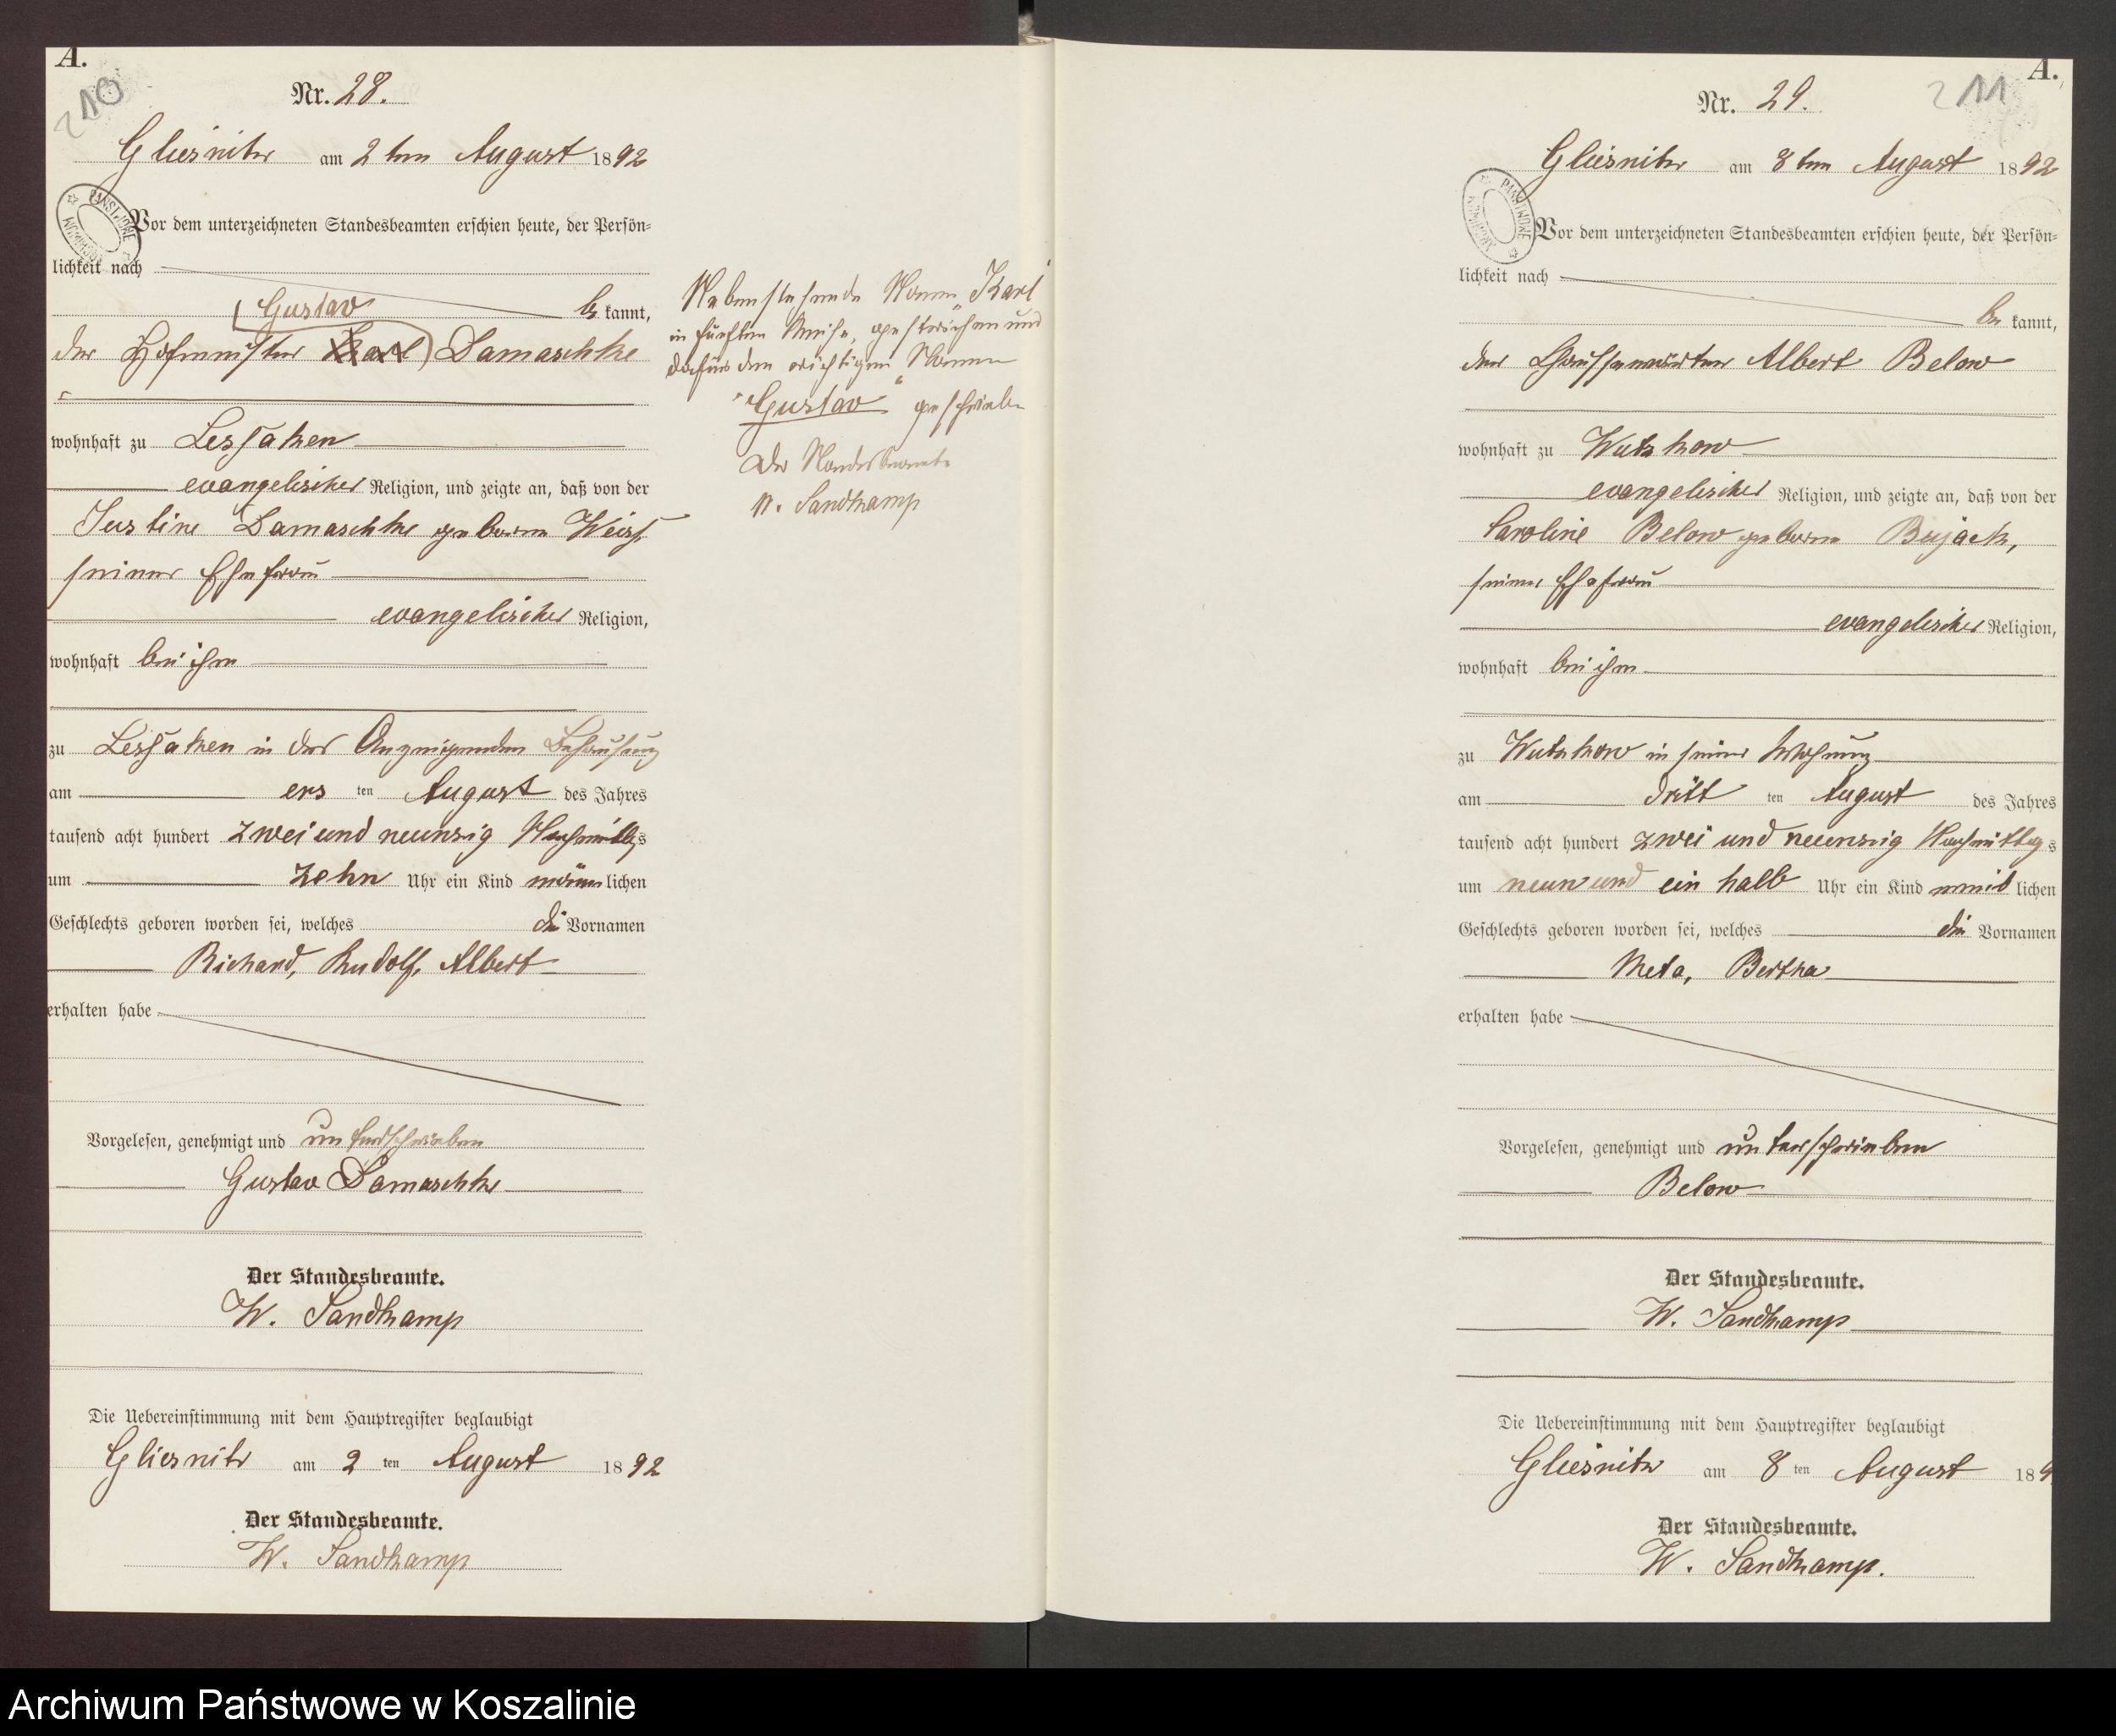 A.
210
Nr. 28.
Gliesnitz am 2ten August 1892
Vor dem unterzeichneten Standesbeamten erschien heute, der Persön=
lichkeit nach
Gustav be kannt,
der Hofmeister Karl Damaschke
wohnhaft zu Lessaken
evangelischer Religion, und zeigte an, daß von der
Justine Damaschke geborne Weiss,
seiner Ehefrau
evangelischer Religion,
wohnhaft bei ihm
zu Lessaken in des Anzeigenden Behausung
am ers ten August des Jahres
tausend acht hundert zwei und neunzig Nachmittags
um zehn Uhr ein Kind männlichen
Geschlechts geboren worden sei, welches die Vornamen
Richard, Rudolf, Albert
erhalten habe
Vorgelesen, genehmigt und unterschrieben
Gustav Damaschke
Der Standesbeamte.
W. Sandkamp
Die Uebereinstimmung mit dem Hauptregister beglaubigt
Gliesnitz am 2 ten August 1892
Der Standesbeamte.
W. Sandkamp
Nebenstehende Namen „Karl"
in fünften Reihe, gestrichen und
dafür den richtigen Namen
"Gustav" geschrieben
Der Standesbeamte
W. Sandkamp
A.
211
Nr. 29.
Gliesnitz am 8ten August 1892
Vor dem unterzeichneten Standesbeamten erschien heute, der Persön=
lichkeit nach
be kannt,
der Chausseewärter Albert Below
wohnhaft zu Wutzkow
evangelischer Religion, und zeigte an, daß von der
Caroline Below geborne Bujack,
seiner Ehefrau
evangelischer Religion,
wohnhaft bei ihm
zu Wutzkow in seiner Wohnung
am dritt ten August des Jahres
tausend acht hundert zwei und neunzig Nachmittags
um neun und ein halb Uhr ein Kind weiblichen
Geschlechts geboren worden sei, welches die Vornamen
Meta, Bertha
erhalten habe
Vorgelesen, genehmigt und unterschrieben
Below
Der Standesbeamte.
W. Sandkamp
Die Uebereinstimmung mit dem Hauptregister beglaubigt
Gliesnitz am 8 ten August 189
Der Standesbeamte.
W. Sandkamp.
Archiwum Państwowe w Koszalinie